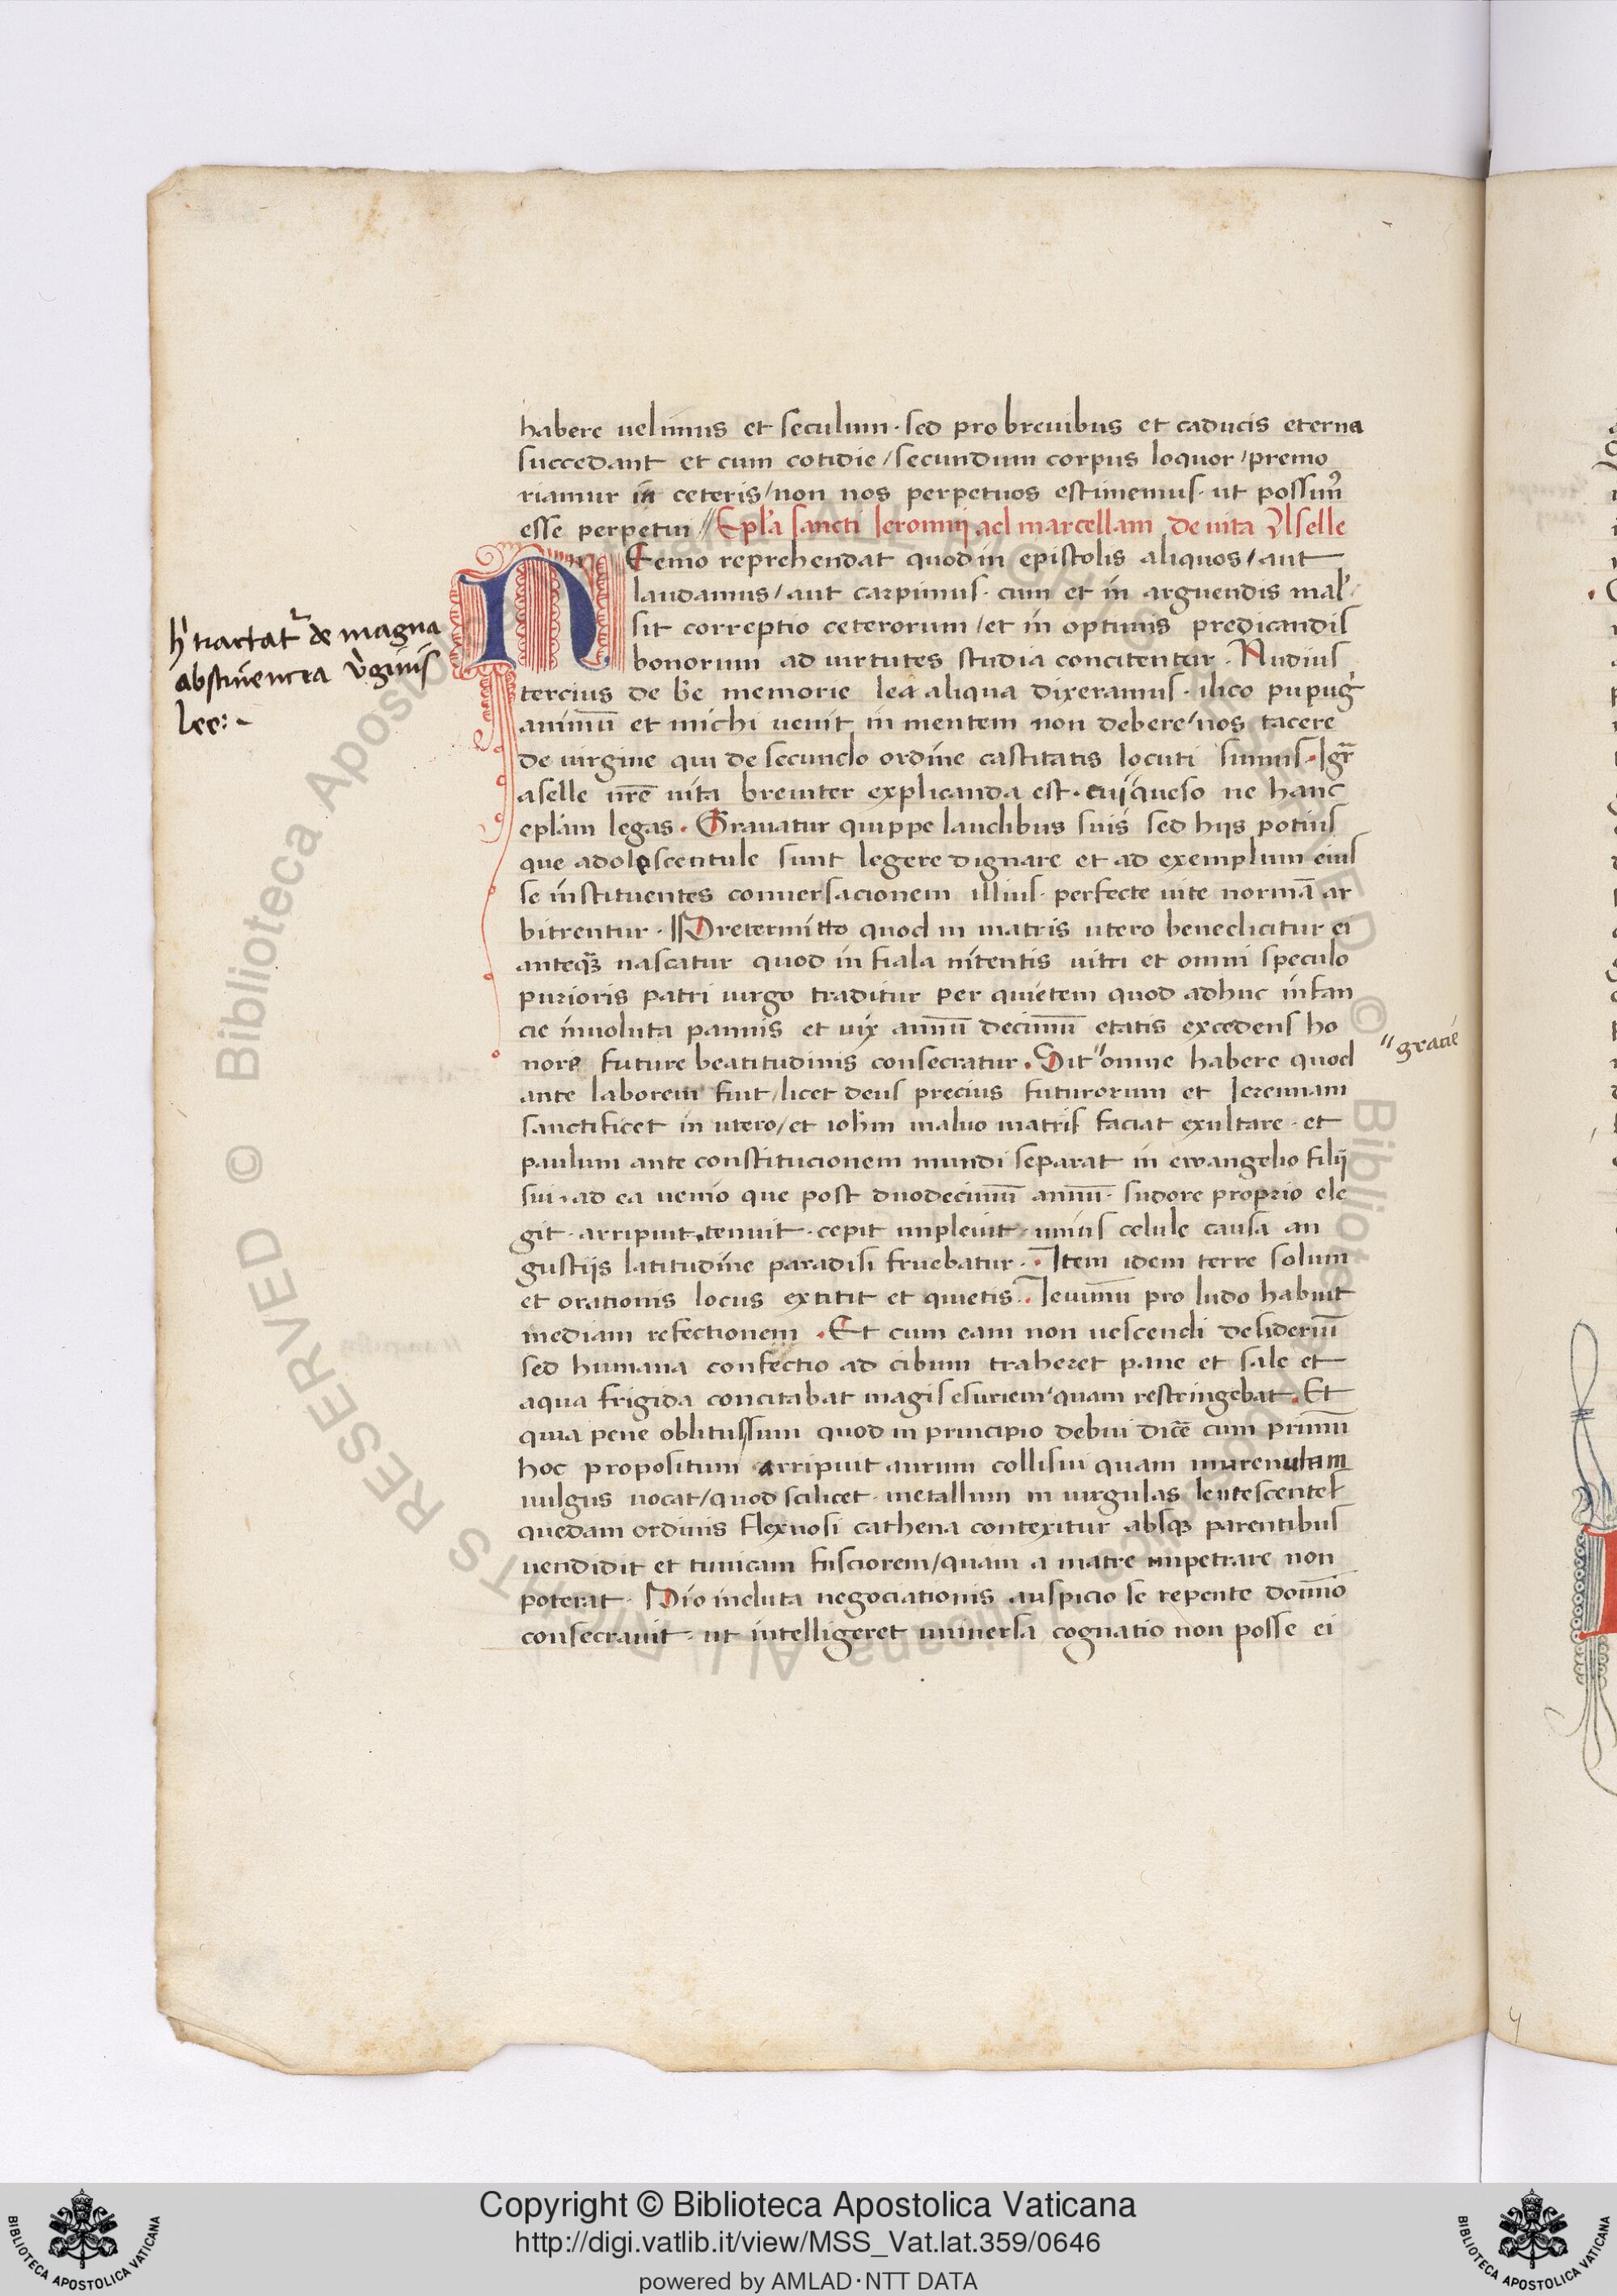 habere uelimus et seculum · sed pro breuibus et caducis eterna
succedant et cum cotidie / secundum corpus loquor / premo
riamur in ceteris / non nos perpetuos estimemus · ut possim᷒
esse perpetui // Epl̄a sancti Ieronimi ad marcellam de uita Aselle
NEemo reprehendat quod in epistolis aliquos / aut
laudamus / aut carpimus · cum et in arguendis mal᷒
sit correptio ceterorum / et in optimis predicandis
bonorum ad uirtutes studia concitentur · Nudius
h' tractat᷒ de magna
abstinencia v̓ginis
Lee: -
tercius de be᷒ memorie lea aliqua dixeramus · ilico pupug᷒
animū et michi uenit in mentem non debere / nos tacere
de uirgine qui de secundo ordine castitatis locuti sumus · Igr̄
aselle nr̄e uita breuiter explicanda est · cui queso ne hanc
epl̄am legas · Grauatur quippe laudibus suis sed hijs potius
que adolescentule sunt legere dignare et ad exemplum eius
se instituentes conuersacionem illius · perfecte uite normā ar
bitrentur · Pretermitto quod in matris utero benedicitur ei
anteqꝫ nascatur quod in fiala nitentis uitri et omni speculo
purioris patri uirgo traditur per quietem quod adhuc infan
cie inuoluta pannis et uix annū decimū etatis excedens ho
nore future beatitudinis consecratur · Sit " omne habere quod
" gracie
ante laborem fuit / licet deus precius futurorum et Ieremiam
sanctificet in utero / et ioh̄m in aluo matris faciat exultare · et
paulum ante constitucionem mundi separat in ewangelio filij
sui · ad ea uenio que post duodecimū annū · sudore proprio ele
git · arripuit, tenuit · cepit impleuit · unius celule causa an
gustijs latitudine paradisi fruebatur · Item idem terre solum
et orationis locus extitit et quietis · Ieiuniū pro ludo habuit
mediam refectionem · Et cum eam non uescendi desideriū
sed humana confectio ad cibum traheret pane et sale et
aqua frigida concitabat magis esuriem / quam restringebat · Et
quia pene oblitus sum quod in principio debui dicē cum primū
hoc propositum arripuit aurum collisui quam murenulam
uulgus uocat / quod scilicet · metallum in uirgulas lentescentes
quedam ordinis flexuosi cathena contexitur absqꝫ parentibus
uendidit et tunicam fusciorem / quam a matre impetrare non
poterat · Pio induta negociationis auspicio se repente domīo
consecrauit · ut intelligeret uniuersa cognatio non posse ei
Copyright © Biblioteca Apostolica Vaticana
http://digi.vatlib.it/view/MSS_Vat.lat.359/0646
powered by AMLAD·NTT DATA